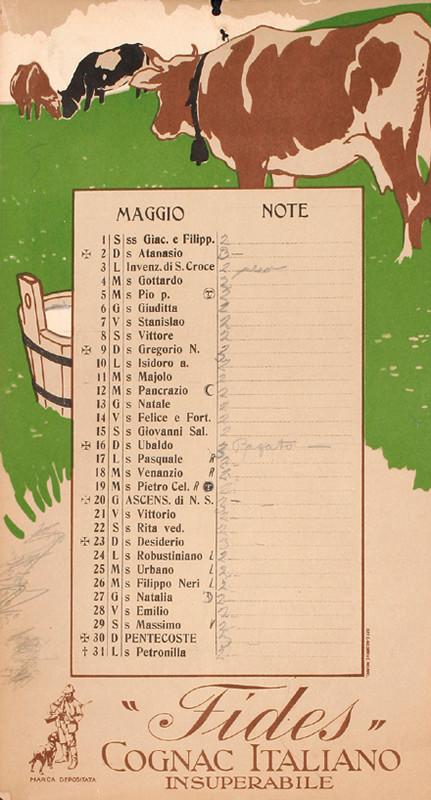 MAGGIO NOTE
1 S ss Giac. e Filipp.
✠ 2 D s Atanasio
3 L Invenz. di S. Croce
4 M s Gottardo
5 M s Pio p.
6 G s Giuditta
7 V s Stanislao
8 S s Vittore
✠ 9 D s Gregorio N.
10 L s Isidoro a.
11 M s Majolo
12 M s Pancrazio
13 G s Natale
14 V s Felice e Fort.
15 S s Giovanni Sal.
✠ 16 D s Ubaldo Pagato —
17 L s Pasquale R
18 M s Venanzio R
19 M s Pietro Cel. R
✠ 20 G ASCENS. di N. S.
21 V s Vittorio
22 S s Rita ved.
✠ 23 D s Desiderio
24 L s Robustiniano L
25 M s Urbano L
26 M s Filippo Neri L
27 G s Natalia
28 V s Emilio
29 S s Massimo V
✠ 30 D PENTECOSTE
† 31 L s Petronilla
"Fides"
COGNAC ITALIANO
INSUPERABILE
MARCA DEPOSITATA